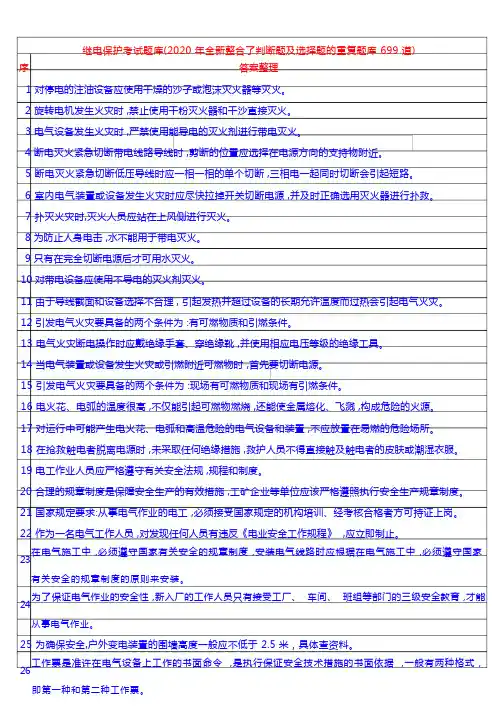 继电保护考试题库(2020 年全新整合了判断题及选择题的重复题库 699 道)
序 答案整理
1 对停电的注油设备应使用干燥的沙子或泡沫灭火器等灭火。
2 旋转电机发生火灾时 ,禁止使用干粉灭火器和干沙直接灭火。
3 电气设备发生火灾时 ,严禁使用能导电的灭火剂进行带电灭火。
4 断电灭火紧急切断带电线路导线时 ,剪断的位置应选择在电源方向的支持物附近。
5 断电灭火紧急切断低压导线时应一相一相的单个切断 ,三相电一起同时切断会引起短路。
6 室内电气装置或设备发生火灾时应尽快拉掉开关切断电源 ,并及时正确选用灭火器进行扑救。
7 扑灭火灾时,灭火人员应站在上风侧进行灭火。
8 为防止人身电击 ,水不能用于带电灭火。
9 只有在完全切断电源后才可用水灭火。
10 对带电设备应使用不导电的灭火剂灭火。
11 由于导线截面和设备选择不合理 , 引起发热并超过设备的长期允许温度而过热会引起电气火灾。
12 引发电气火灾要具备的两个条件为 :有可燃物质和引燃条件。
13 电气火灾断电操作时应戴绝缘手套、穿绝缘靴 ,并使用相应电压等级的绝缘工具。
14 当电气装置或设备发生火灾或引燃附近可燃物时 ,首先要切断电源。
15 引发电气火灾要具备的两个条件为 :现场有可燃物质和现场有引燃条件。
16 电火花、电弧的温度很高 ,不仅能引起可燃物燃烧 ,还能使金属熔化、飞溅 ,构成危险的火源。
17 对运行中可能产生电火花、电弧和高温危险的电气设备和装置 ,不应放置在易燃的危险场所。
18 在抢救触电者脱离电源时 ,未采取任何绝缘措施 ,救护人员不得直接触及触电者的皮肤或潮湿衣服。
19 电工作业人员应严格遵守有关安全法规 ,规程和制度。
20 合理的规章制度是保障安全生产的有效措施 ,工矿企业等单位应该严格遵照执行安全生产规章制度。
21 国家规定要求:从事电气作业的电工 ,必须接受国家规定的机构培训、经考核合格者方可持证上岗。
22 作为一名电气工作人员 ,对发现任何人员有违反《电业安全工作规程》 ,应立即制止。
23 在电气施工中 ,必须遵守国家有关安全的规章制度 ,安装电气线路时应根据在电气施工中 ,必须遵守国家
有关安全的规章制度的原则来安装。
24 为了保证电气作业的安全性 ,新入厂的工作人员只有接受工厂、 车间、 班组等部门的三级安全教育 ,才能
从事电气作业。
25 为确保安全,户外变电装置的围墙高度一般应不低于 2.5 米 , 具体查资料。
26 工作票是准许在电气设备上工作的书面命令 ,是执行保证安全技术措施的书面依据 ,一般有两种格式 ,
即第一种和第二种工作票。